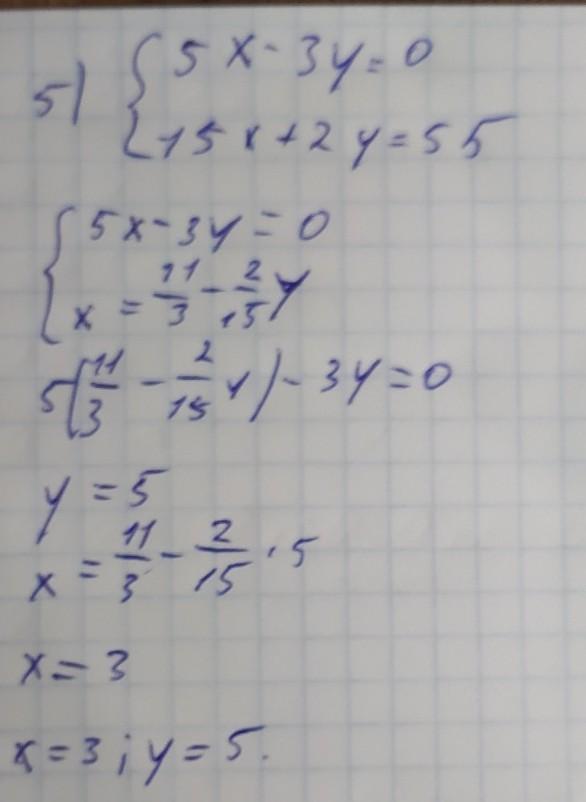 5) { 5x - 3y = 0
15x + 2y = 55
{ 5x - 3y = 0
x = 11/3 - 2/15 y
5(11/3 - 2/15 y) - 3y = 0
y = 5
x = 11/3 - 2/15 · 5
x = 3
x = 3; y = 5.